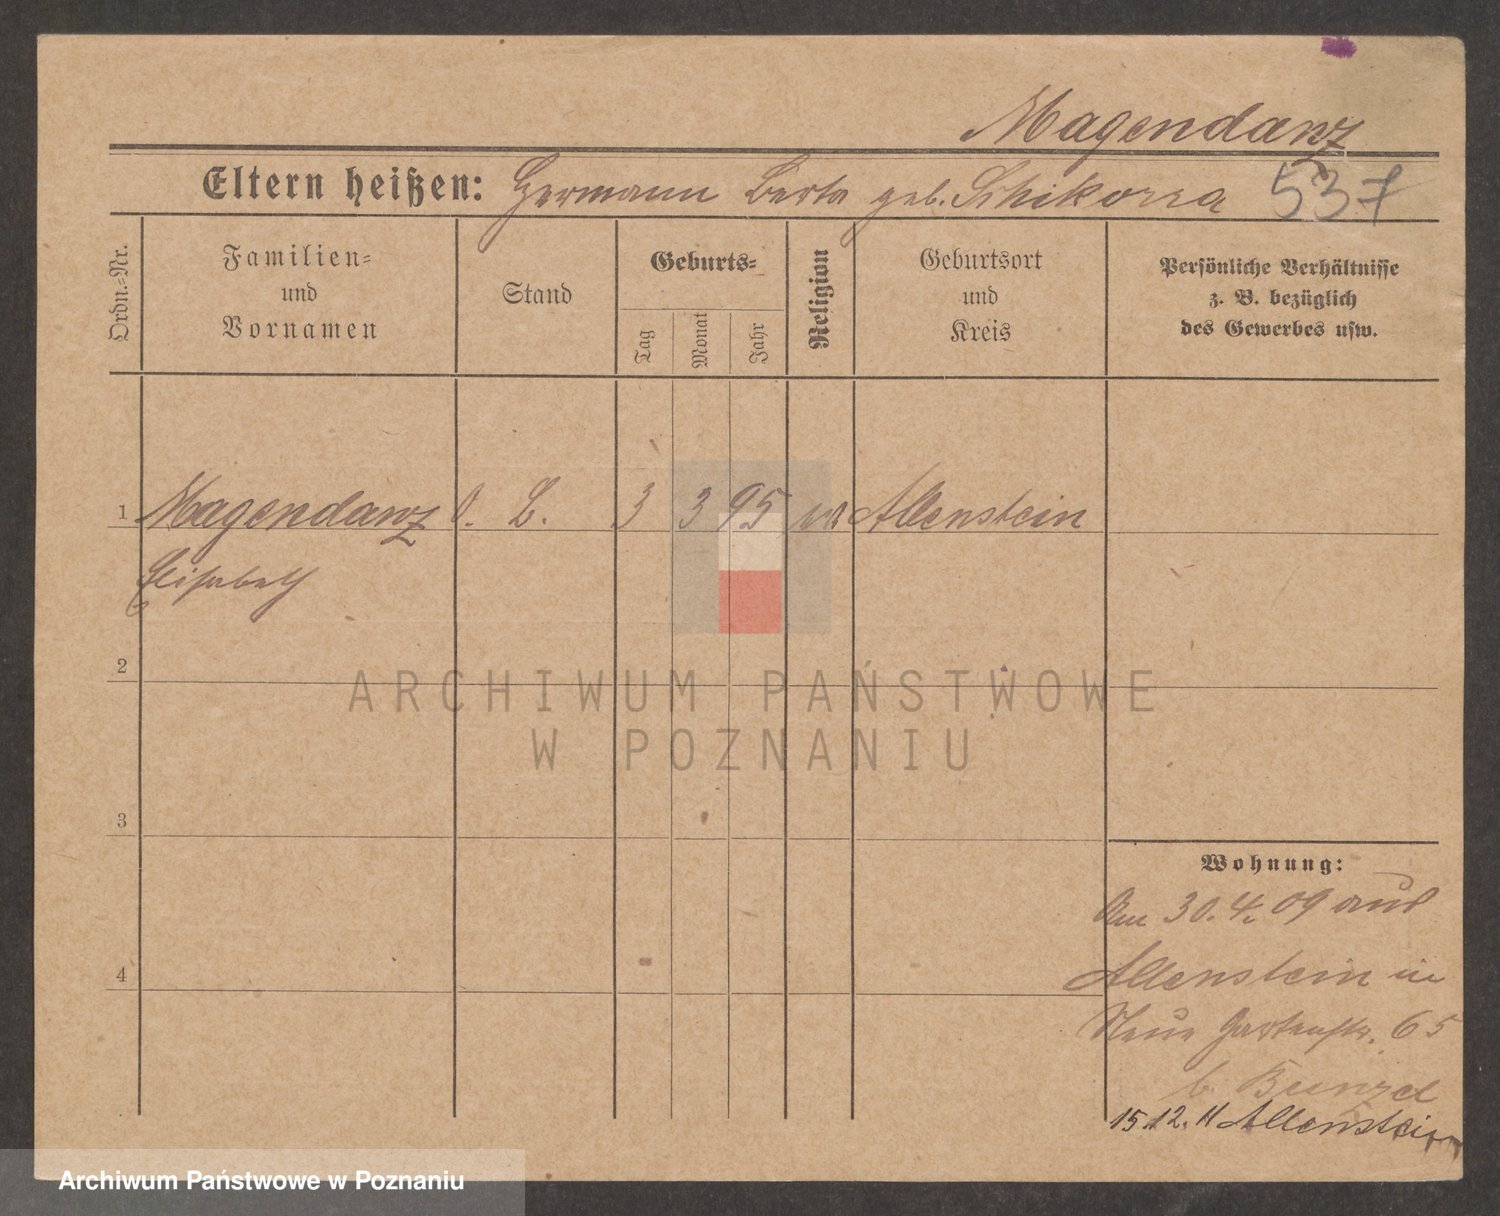 Magendanz
Eltern heißen: Hermann Berta geb. Schikorra 537
Ordn.-Nr.
Familien-
und
Vornamen
Stand
Geburts-
Tag
Monat
Jahr
Religion
Geburtsort
und
Kreis
Persönliche Verhältnisse
z. B. bezüglich
des Gewerbes usw.
1 Magendanz o. L. 3 3 95 Allenstein
Elisabeth
2
ARCHIWUM PAŃSTWOWE
W POZNANIU
3
Wohnung:
Am 30.4.09 aus
4
Allenstein in
Neue Gartenstr. 65
b.
15.12.11 Allenstein
Archiwum Państwowe w Poznaniu